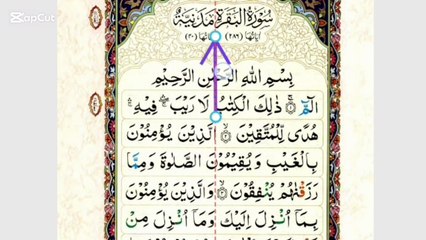 CapCut
سُوْرَةُ الْبَقَرَةِ مَدَنِيَّةٌ
اٰيَاتُهَا (٢٨٦)
(٤٠)
بِسْمِ اللهِ الرَّحْمٰنِ الرَّحِيْمِ
الٓمّٓ ۚ ١ ذٰلِكَ الْكِتٰبُ لَا رَيْبَ ۛ فِيْهِ ۛ
هُدًى لِّلْمُتَّقِيْنَ ۙ ٢ الَّذِيْنَ يُؤْمِنُوْنَ
بِالْغَيْبِ وَيُقِيْمُوْنَ الصَّلٰوةَ وَمِمَّا
رَزَقْنٰهُمْ يُنْفِقُوْنَ ۙ ٣ وَالَّذِيْنَ يُؤْمِنُوْنَ
بِمَآ اُنْزِلَ اِلَيْكَ وَمَآ اُنْزِلَ مِنْ